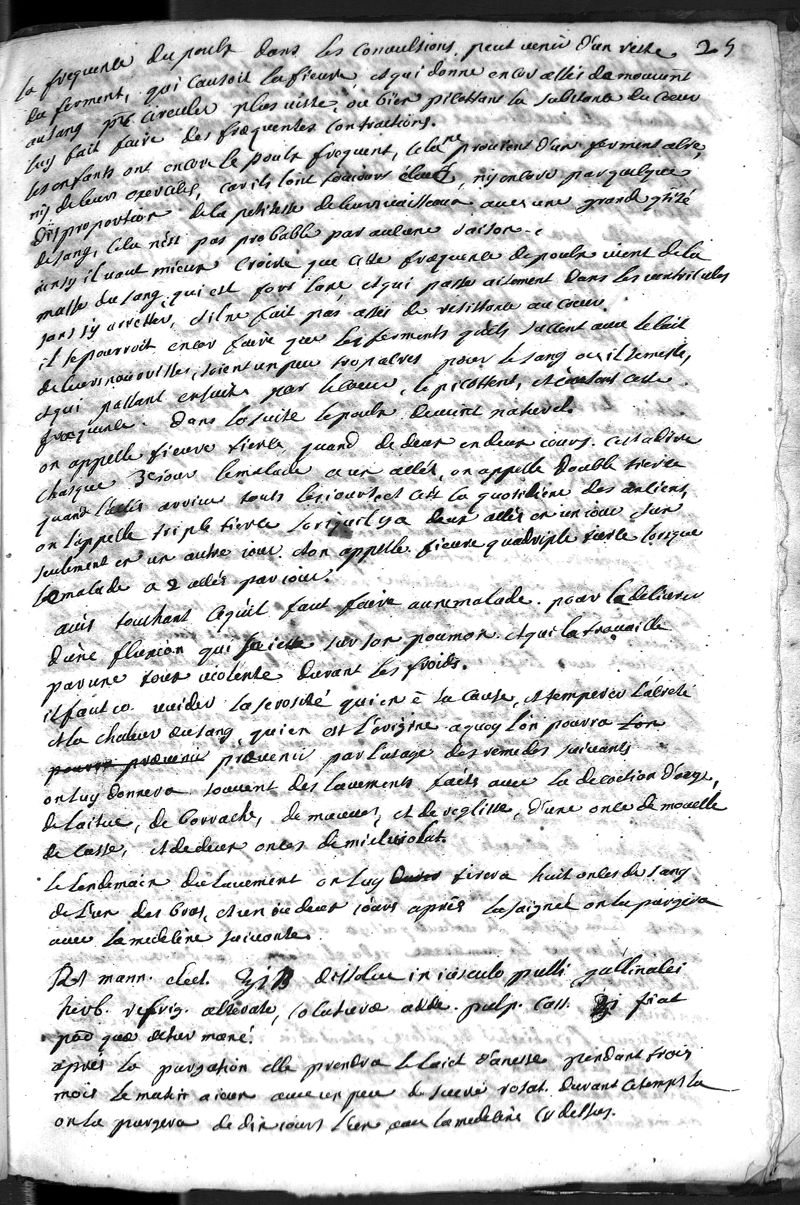 25
la frequence du pouls dans les convultions peut venir d'un reste
du ferment, qui causoit la fieure, et qui donne encor assés de mouuemt
au sang pr circuler plus viste, ou bien picottant la substance du coeur
luy fait faire des frequentes contractions.
les enfants ont encore le pouls frequent, cela ne prouient d'un ferment acre,
ny de leurs exercices, car ils sont toujours , ny encore par quelque
disproportion de la petitesse de leurs vaisseaux auec une grande qtité
de sang, cela n'est pas probable par aucune raison.
ainsy il vaut mieux croire que cette frequence de pouls vient de la
masse du sang, qui est fort , et qui passe aisement dans les ventricules
sans s'y arrester, et il ne fait pas assés de resistance au coeur.
il se pourroit encor faire que les ferments qu'ils succent auec le lait
de leurs nourrisses, soient un peu trop acres pour le sang ou il se mesle,
et qui passant ensuite par le coeur, le picottent, et causent cette
frequence. dans la suite le pouls deuient naturel.
on appelle fieure tierce quand de deux en deux jours. c'est a dire
chasque 3e jour le malade a un accés, on appelle double tierce
quand l'accés arriue touts les jours, et c'est la quotidiene des anciens,
on l'appelle triple tierce lorsqu'il y a deux accés en un jour, un
seulement en un autre jour. et on appelle fieure quadriple tierce lorsque
le malade a 2 accés par jour.
auis touchant ce qu'il faut faire a une malade. pour la deliurer
d'une fluxion qui se iette sur son poumon. et qui la trauaille
par une toux violente durant les froids.
il faut co. vuider la serosité qui en ē la cause, et temperer l'acreté
et la chaleur du sang, qui en est l'origine. a quoy l'on pourra l'on
pourra preuenir preuenir par l'usage des remedes suiuants
on luy donnera souuent des lauements faits auec la decoction d'orge,
de laitue, de borrache, de mauues, et de reglisse, d'une once de mouelle
de casse, et de deux onces de miel violat.
le lendemain du lauement on luy tirera huit onces de sang
de l'un des bras, et un ou deux jours aprés la saigneé on la purgera
auec la medecine suiuante.
Rx mann. elect. ℥ij ß dissolue in iusculo pulli gallinacei
herb. refrig. alterato, colaturae adde. pulp. cass. ℥j fiat
potio quae detur mané.
aprés la purgation elle prendra le laict d'anesse pendant trois
mois le matin a jeun auec un peu de sucre rosat. durant ce temps la
on la purgera de dix jours l'un auec la medecine cy dessus.